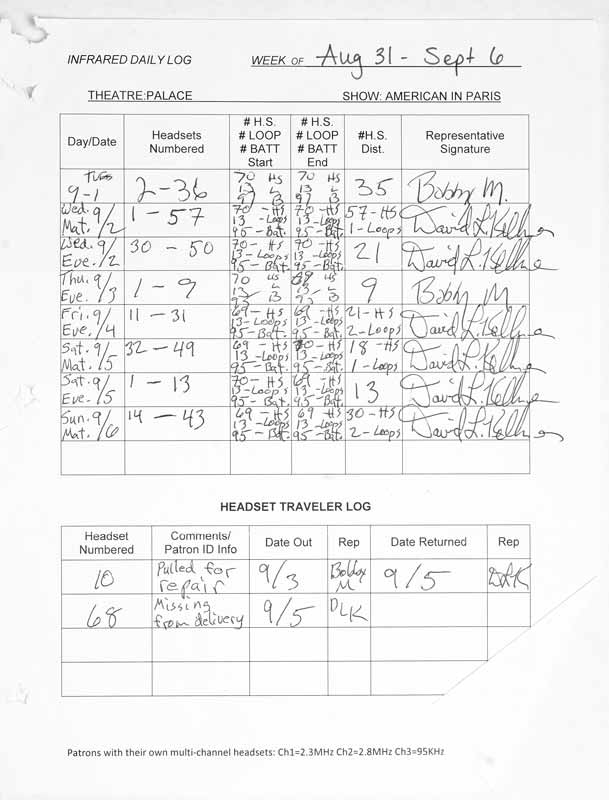 INFRARED DAILY LOG WEEK OF Aug 31 - Sept 6
THEATRE:PALACE SHOW: AMERICAN IN PARIS
Day/Date Headsets Numbered # H.S. # LOOP # BATT Start # H.S. # LOOP # BATT End #H.S. Dist. Representative Signature
Tues 9-1 2-36 70 HS 13 L 70 HS 13 L 35 Bobby M.
Wed. 9/2 Mat. 1 - 57 70 - HS 13 - Loops 95 - Bat. 70 - HS 13 - Loops 95 - Bat. 57 - HS 1 - Loops David L. Kellne
Wed. 9/2 Eve. 30 - 50 70 - HS 13 - Loops 95 - Bat. 70 - HS 13 - Loops 95 - Bat. 21 David L. Kellne
Thu. 9/3 Eve. 1 - 9 70 HS 13 L 95 B 69 HS 13 L 95 B 9 Bobby M
Fri. 9/4 Eve. 11 - 31 69 - HS 13 - Loops 95 - Bat. 69 - HS 13 - Loops 95 - Bat. 21 - HS 2 - Loops David L. Kellne
Sat. 9/5 Mat. 32 - 49 69 - HS 13 - Loops 95 - Bat. 70 - HS 13 - Loops 95 - Bat. 18 - HS 1 - Loops David L. Kellne
Sat. 9/5 Eve. 1 - 13 70 - HS 13 - Loops 95 - Bat. 69 - HS 13 - Loops 95 - Bat. 13 David L. Kellne
Sun. 9/6 Mat. 14 - 43 69 - HS 13 - Loops 95 - Bat. 69 - HS 13 - Loops 95 - Bat. 30 - HS 2 - Loops David L. Kellne
HEADSET TRAVELER LOG
Headset Numbered Comments/ Patron ID Info Date Out Rep Date Returned Rep
10 Pulled for repair 9/3 Bobby M 9/5 DLK
68 Missing from delivery 9/5 DLK
Patrons with their own multi-channel headsets: Ch1=2.3MHz Ch2=2.8MHz Ch3=95KHz